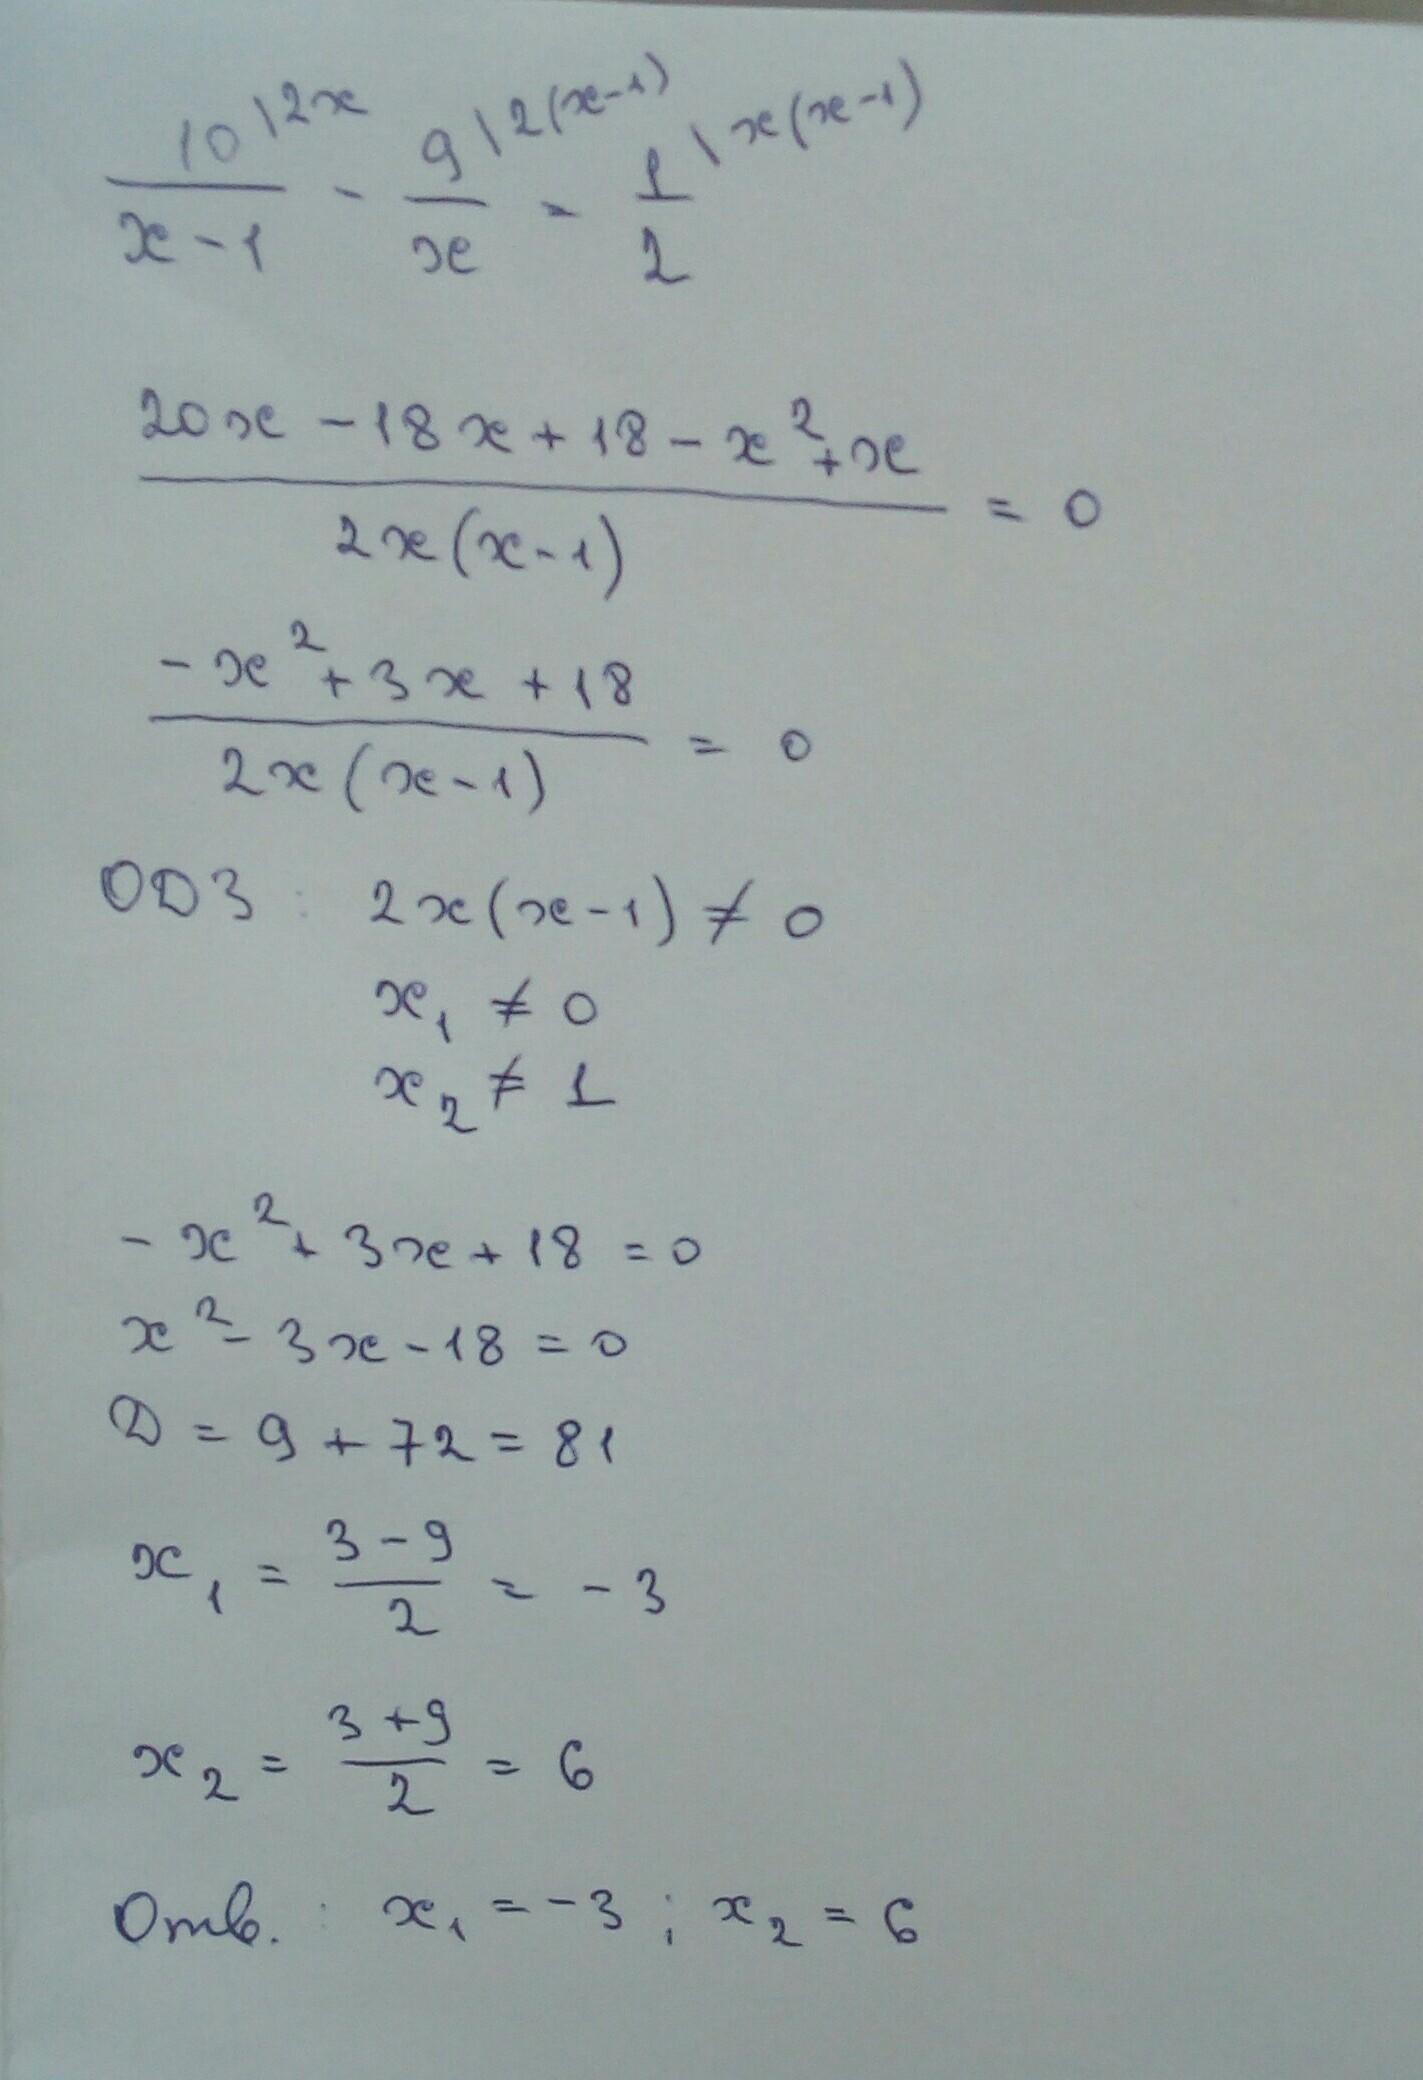 10\2x / (x-1) - 9\2(x-1) / x = 1\x(x-1) / 2
(20x - 18x + 18 - x² + x) / (2x(x-1)) = 0
(-x² + 3x + 18) / (2x(x-1)) = 0
ОДЗ : 2x(x-1) ≠ 0
x₁ ≠ 0
x₂ ≠ 1
-x² + 3x + 18 = 0
x² - 3x - 18 = 0
D = 9 + 72 = 81
x₁ = (3 - 9) / 2 = -3
x₂ = (3 + 9) / 2 = 6
Отв. : x₁ = -3 ; x₂ = 6